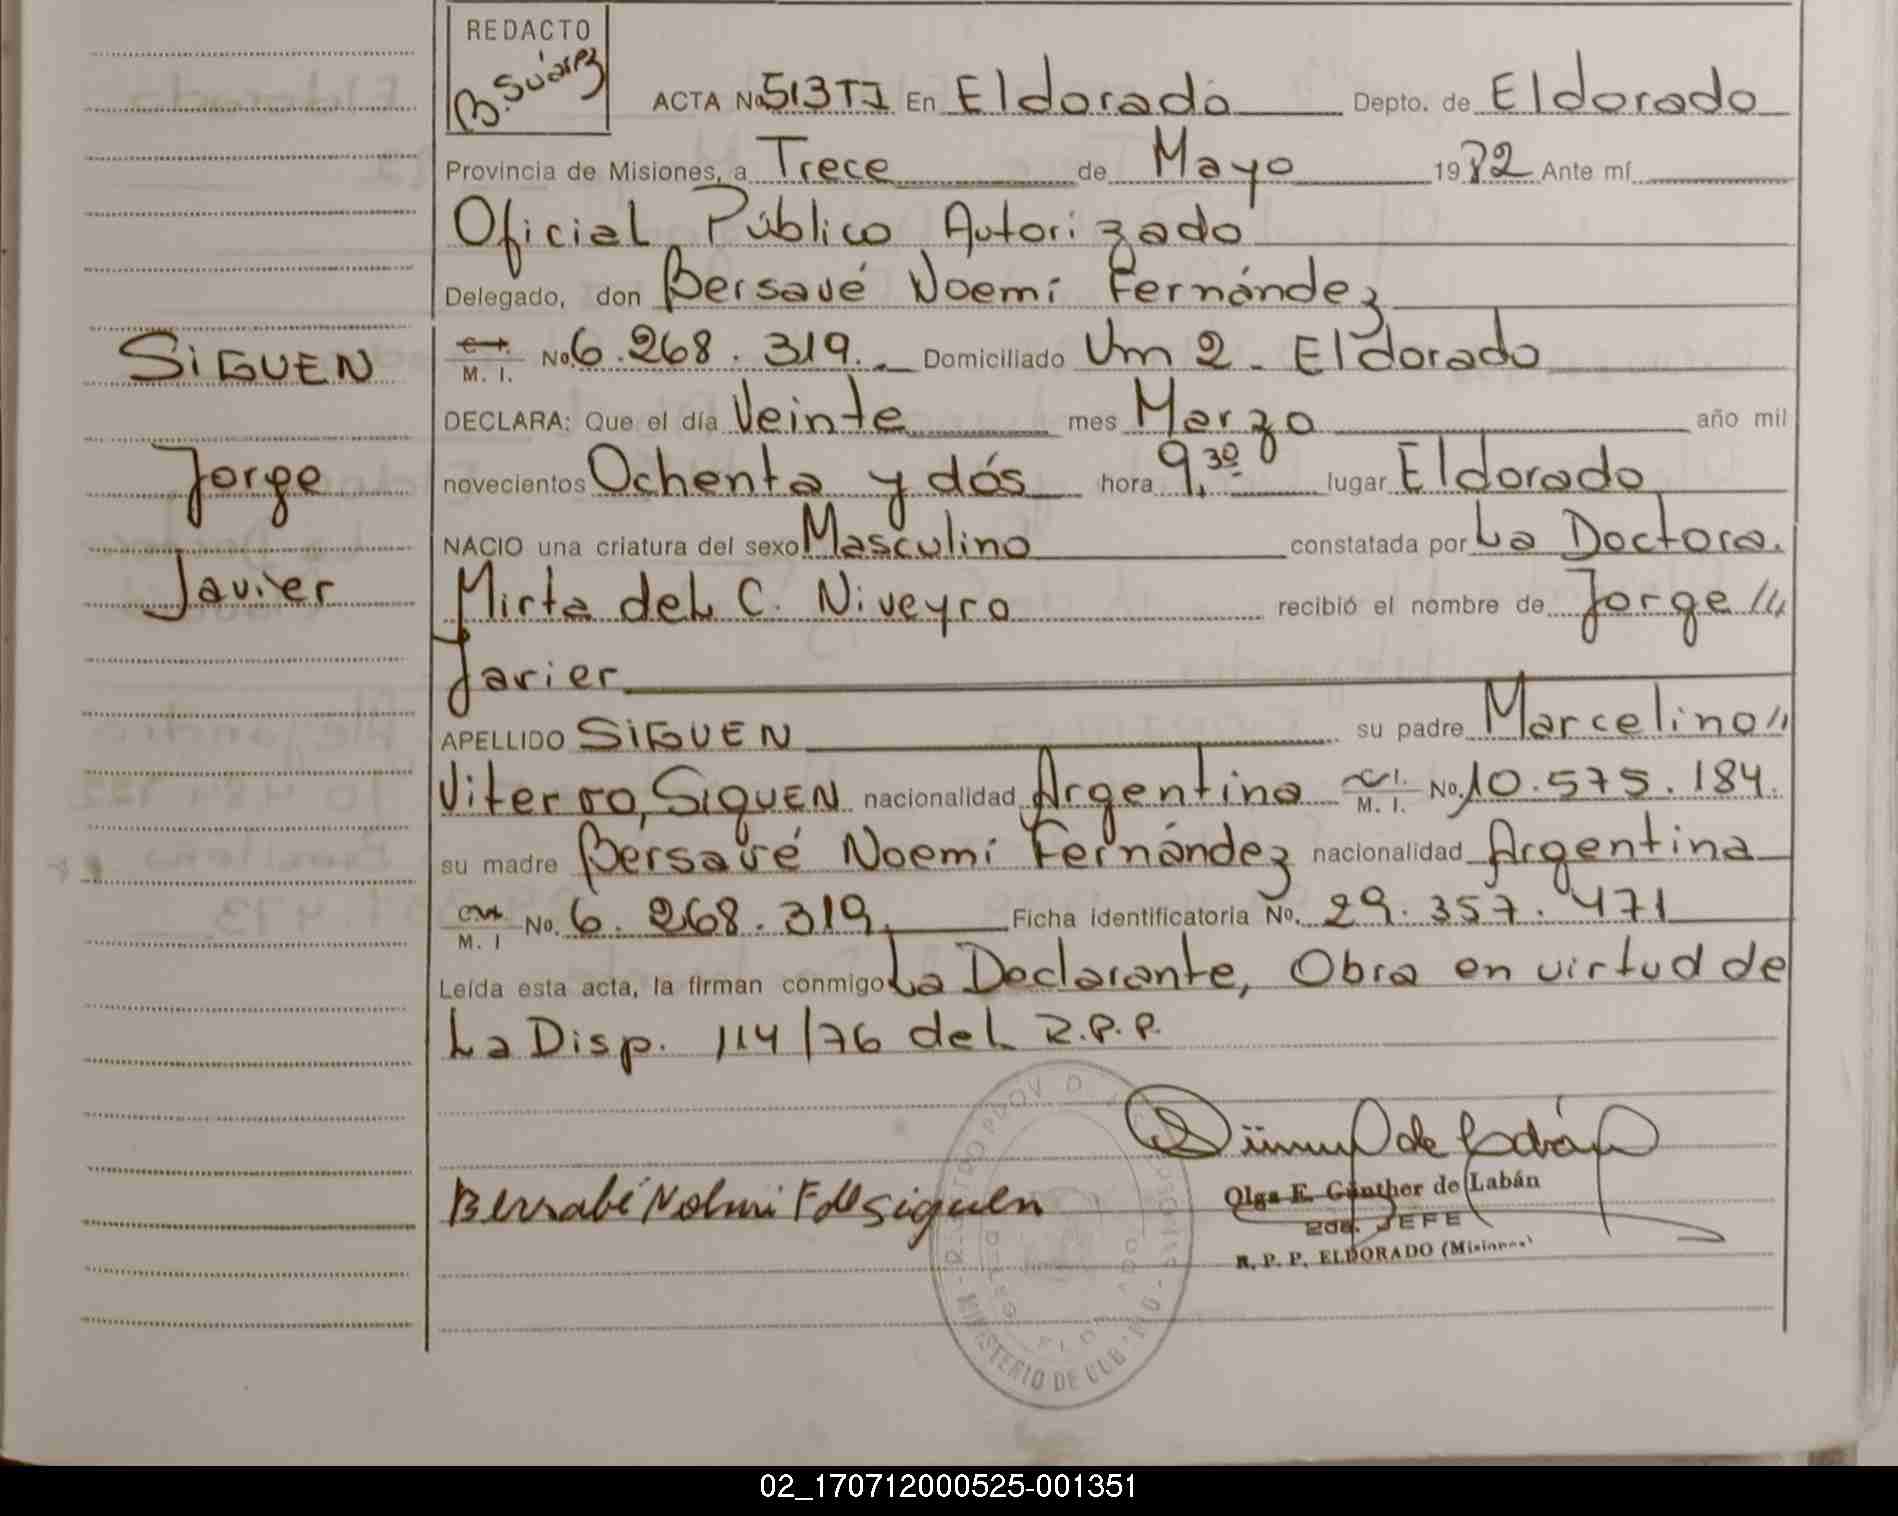 REDACTO
B. Suárez
ACTA No 513 TI En Eldorado Depto. de Eldorado
Provincia de Misiones, a Trece de Mayo 1982 Ante mí
Oficial Público Autorizado
Delegado, don Bersavé Noemí Fernández
M. I. No 6.268.319. Domiciliado Km 2 - Eldorado
DECLARA: Que el día Veinte mes Marzo año mil
novecientos Ochenta y dós hora 9,30 lugar Eldorado
NACIO una criatura del sexo Masculino constatada por La Doctora.
Mirta del C. Niveyro recibió el nombre de Jorge ///
Javier
APELLIDO SIGUEN su padre Marcelino //
Viterro, SIGUEN nacionalidad Argentina C. I. M. I. No. 10.575.184.
su madre Bersavé Noemí Fernández nacionalidad Argentina
M. I No. 6.268.319. Ficha identificatoria No. 29.357.471
Leída esta acta, la firman conmigo La Declarante, Obra en virtud de
La Disp. 114/76 del R.P.P.
SIGUEN
Jorge
Javier
Bersabé Nohmi F de Siguen
Olga E. Günther de Labán
2da. JEFE
R. P. P. ELDORADO (Misiones)
MINISTERIO DE
02_170712000525-001351